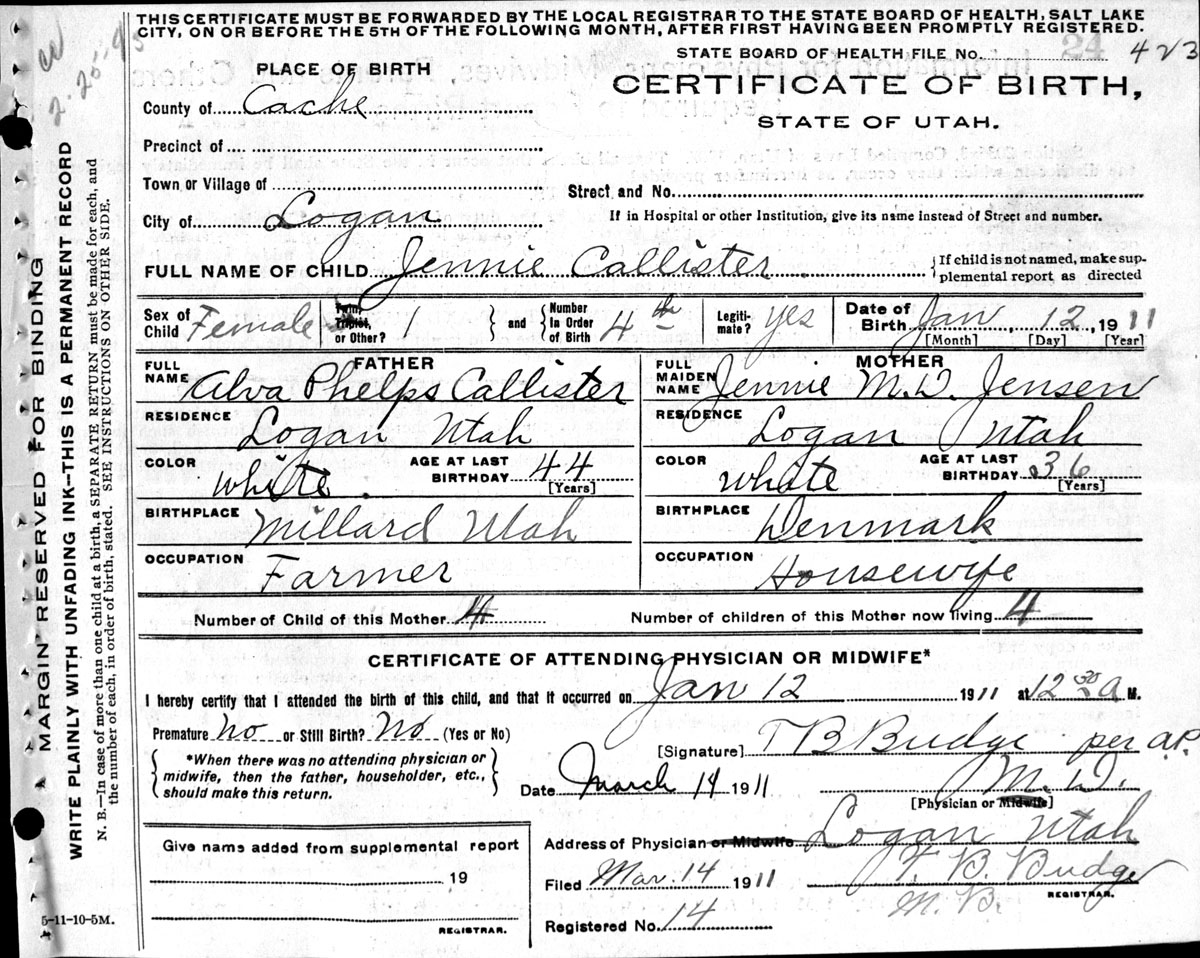 THIS CERTIFICATE MUST BE FORWARDED BY THE LOCAL REGISTRAR TO THE STATE BOARD OF HEALTH, SALT LAKE
CITY, ON OR BEFORE THE 5TH OF THE FOLLOWING MONTH, AFTER FIRST HAVING BEEN PROMPTLY REGISTERED.
STATE BOARD OF HEALTH FILE No. 24 423
PLACE OF BIRTH
CERTIFICATE OF BIRTH,
STATE OF UTAH.
County of Cache
Precinct of
Town or Village of
Street and No.
City of Logan
If in Hospital or other Institution, give its name instead of Street and number.
FULL NAME OF CHILD Jennie Callister
If child is not named, make sup-
plemental report as directed
Sex of Child Female
Twin, Triplet, or Other? 1
and
Number In Order of Birth 4th
Legiti-mate? yes
Date of Birth Jan 12, 1911
[Month] [Day] [Year]
FATHER
FULL NAME Alva Phelps Callister
RESIDENCE Logan Utah
COLOR White. AGE AT LAST BIRTHDAY 44 [Years]
BIRTHPLACE Millard Utah
OCCUPATION Farmer
MOTHER
FULL MAIDEN NAME Jennie M. D. Jensen
RESIDENCE Logan Utah
COLOR White AGE AT LAST BIRTHDAY 36 [Years]
BIRTHPLACE Denmark
OCCUPATION Housewife
Number of Child of this Mother 4 Number of children of this Mother now living 4
CERTIFICATE OF ATTENDING PHYSICIAN OR MIDWIFE*
I hereby certify that I attended the birth of this child, and that it occurred on Jan 12 1911 at 12 30 a M.
Premature No or Still Birth? No (Yes or No)
[Signature] T B Budge per a.P.
*When there was no attending physician or
midwife, then the father, householder, etc.,
should make this return.
Date March 14 1911 M. D.
[Physician or Midwife]
Address of Physician or Midwife Logan Utah
Give name added from supplemental report
19
REGISTRAR.
Filed Mar. 14 1911 T. B. Budge
M. D. REGISTRAR.
Registered No. 14
5-11-10-5M.
MARGIN RESERVED FOR BINDING
WRITE PLAINLY WITH UNFADING INK—THIS IS A PERMANENT RECORD
N. B.—In case of more than one child at a birth, a SEPARATE RETURN must be made for each, and
the number of each, in order of birth, stated. SEE INSTRUCTIONS ON OTHER SIDE.